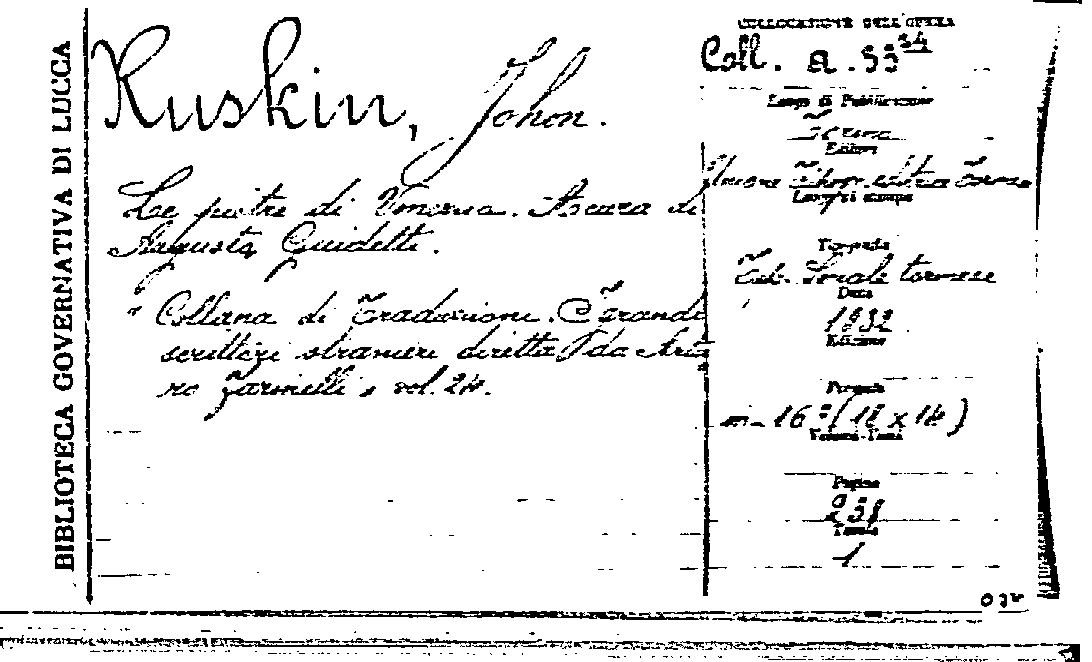 BIBLIOTECA GOVERNATIVA DI LUCCA
Ruskin, Johon.
Le pietre di Venezia. A cura di
Augusta Guidetti.
"Collana di Traduzioni. I grandi
scrittori stranieri diretta da Artu
ro Farinelli, vol. 24.
COLLOCAZIONE DELL'OPERA
Coll. A. 33 34
Luogo di Pubblicazione
Torino
Editori
Unione Tipogr. editrice Torinese
Luogo di stampa
Tipografia
Tip. Sociale torinese
Data
1932
Edizione
Formato
in-16° (12 x 14)
Volumi-Tomi
Pagine
258
Tavole
1